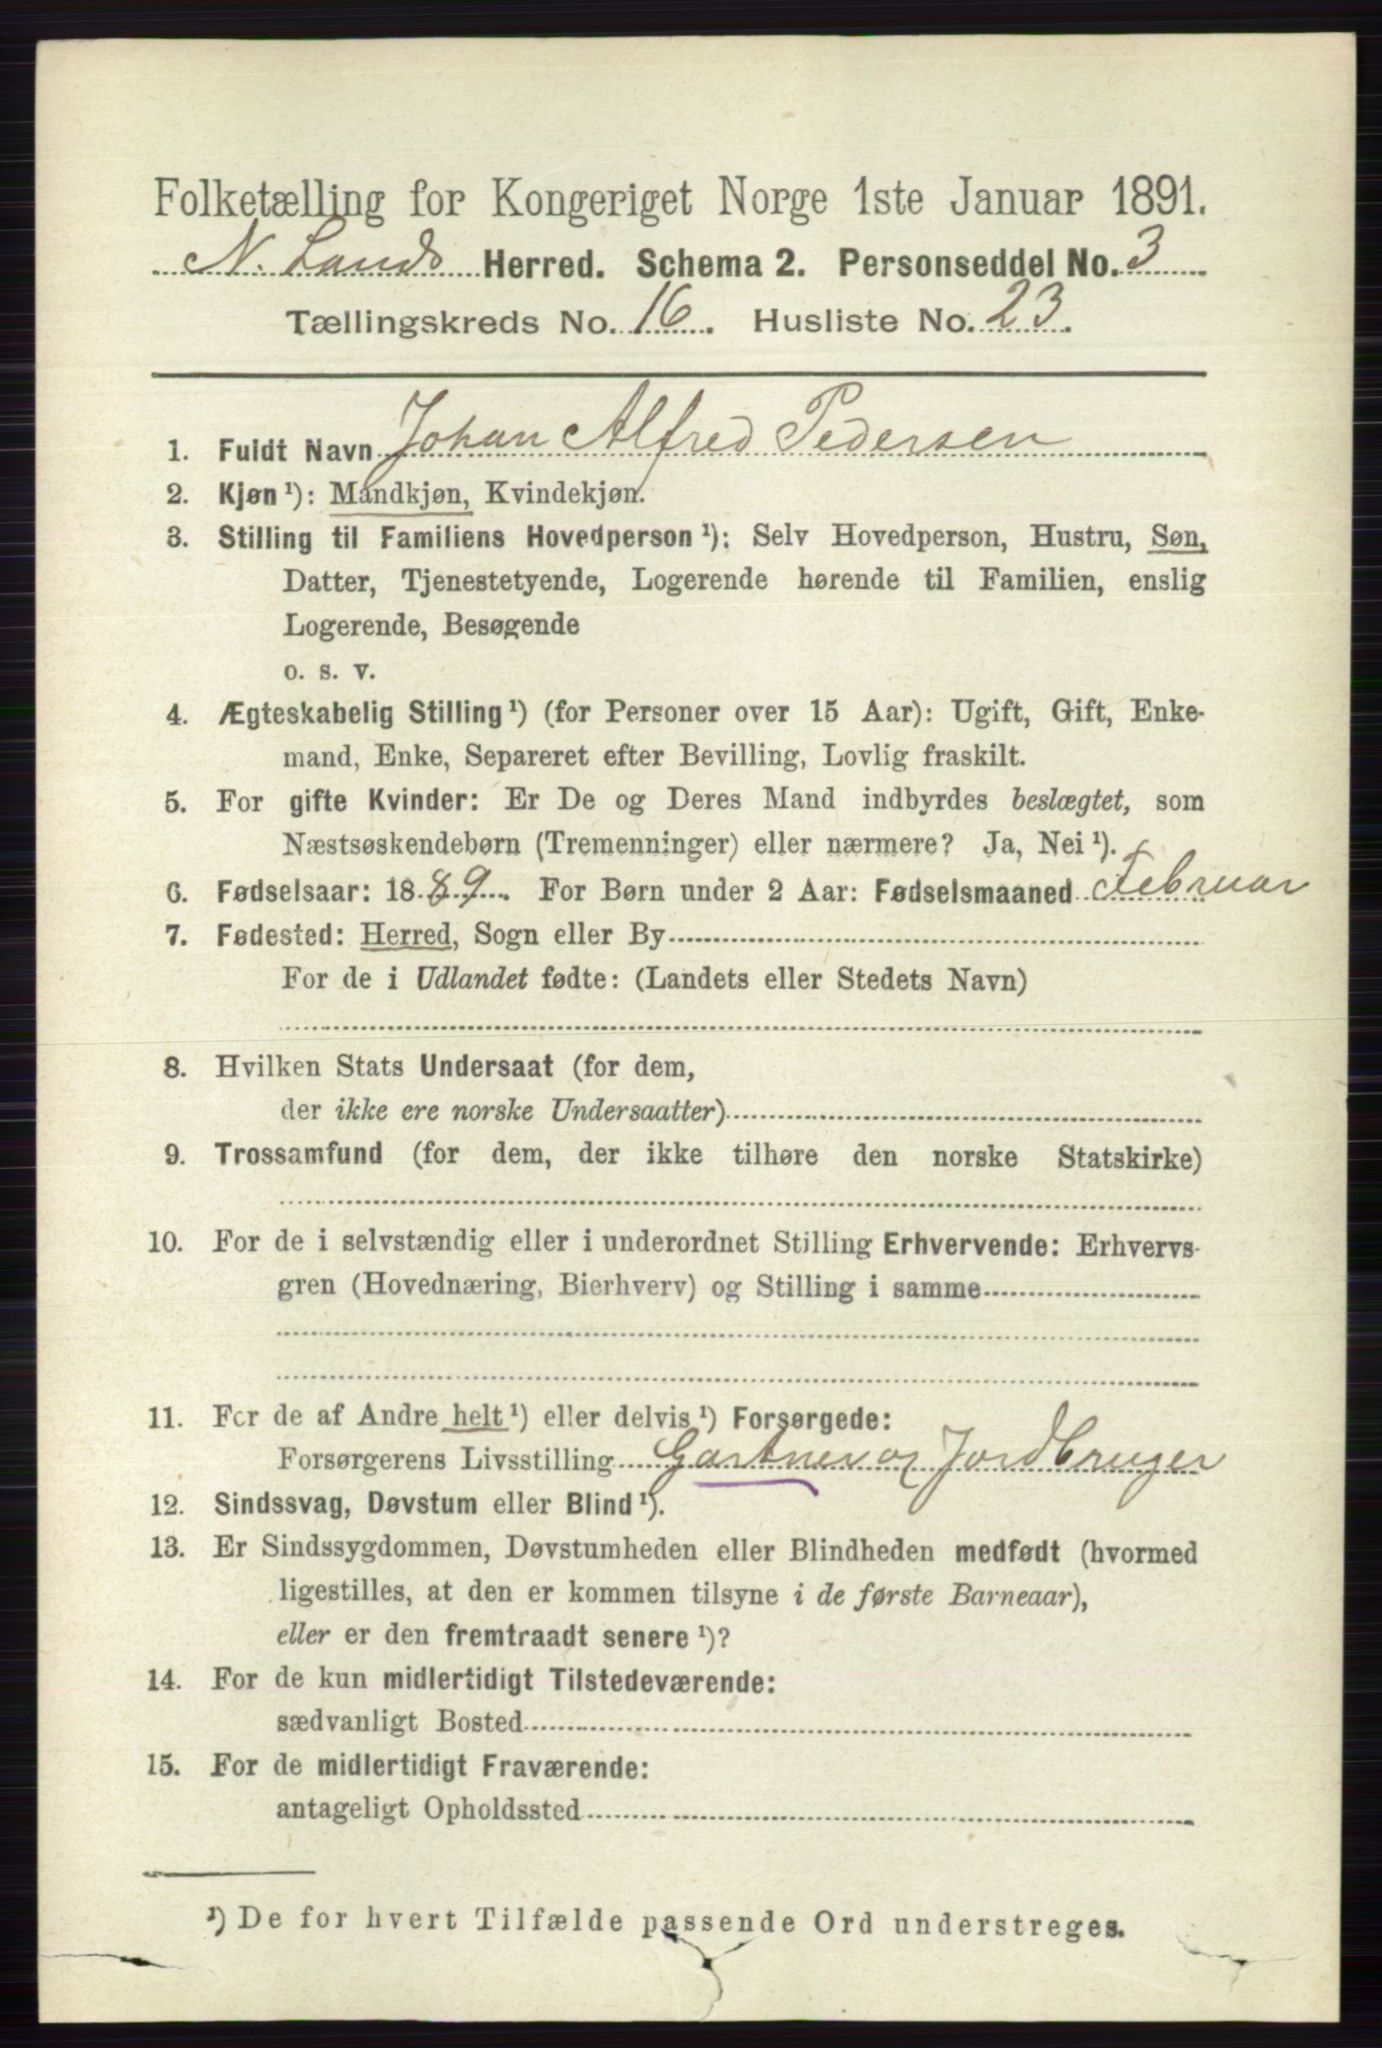 Folketælling for Kongeriget Norge 1ste Januar 1891.
N. Lands Herred. Schema 2. Personseddel No. 3
Tællingskreds No. 16. Husliste No. 23.
1. Fuldt Navn Johan Alfred Pedersen
2. Kjøn ¹): Mandkjøn, Kvindekjøn.
3. Stilling til Familiens Hovedperson ¹): Selv Hovedperson, Hustru, Søn,
Datter, Tjenestetyende, Logerende hørende til Familien, enslig
Logerende, Besøgende
o. s. v.
4. Ægteskabelig Stilling ¹) (for Personer over 15 Aar): Ugift, Gift, Enke-
mand, Enke, Separeret efter Bevilling, Lovlig fraskilt.
5. For gifte Kvinder: Er De og Deres Mand indbyrdes beslægtet, som
Næstsøskendebørn (Tremenninger) eller nærmere? Ja, Nei ¹).
6. Fødselsaar: 1889. For Børn under 2 Aar: Fødselsmaaned Februar
7. Fødested: Herred, Sogn eller By
For de i Udlandet fødte: (Landets eller Stedets Navn)
8. Hvilken Stats Undersaat (for dem,
der ikke ere norske Undersaatter)
9. Trossamfund (for dem, der ikke tilhøre den norske Statskirke)
10. For de i selvstændig eller i underordnet Stilling Erhvervende: Erhvervs-
gren (Hovednæring, Bierhverv) og Stilling i samme
11. For de af Andre helt ¹) eller delvis ¹) Forsørgede:
Forsørgerens Livsstilling Gartner og Jordbruger
12. Sindssvag, Døvstum eller Blind ¹).
13. Er Sindssygdommen, Døvstumheden eller Blindheden medfødt (hvormed
ligestilles, at den er kommen tilsyne i de første Barneaar),
eller er den fremtraadt senere ¹)?
14. For de kun midlertidigt Tilstedeværende:
sædvanligt Bosted
15. For de midlertidigt Fraværende:
antageligt Opholdssted
¹) De for hvert Tilfælde passende Ord understreges.